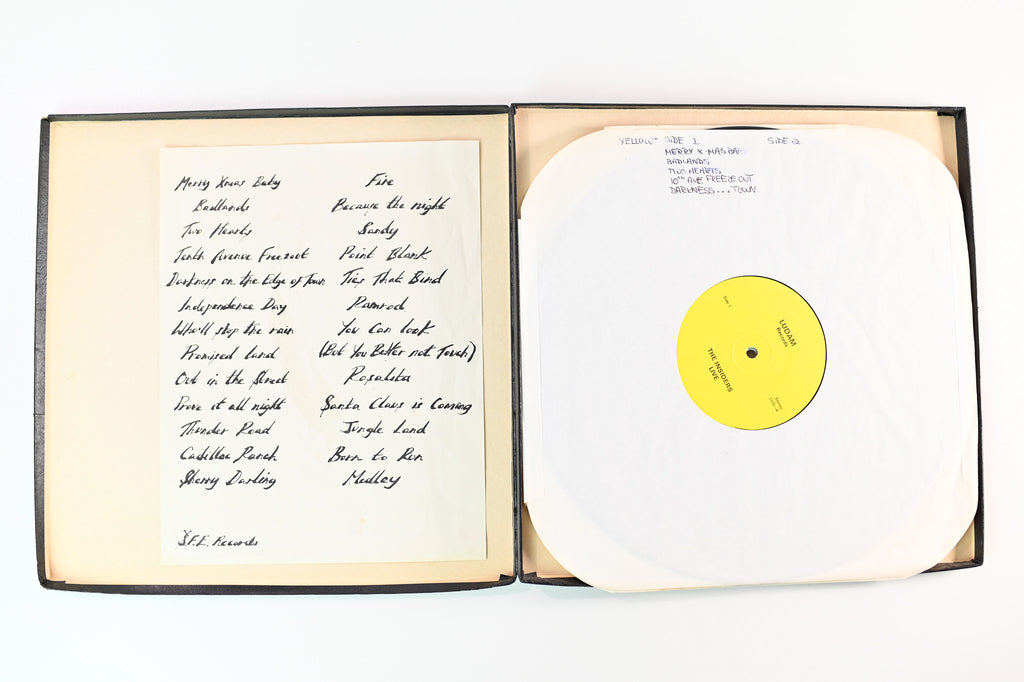 Merry Xmas Baby
Badlands
Two Hearts
Tenth Avenue Freezout
Darkness on the Edge of Town
Independence Day
Who'll stop the rain
Promised Land
Out in the Street
Prove it all night
Thunder Road
Cadillac Ranch
Sherry Darling
S.F.E. Records
Fire
Because the night
Sandy
Point Blank
Ties That Bind
Ramrod
You Can look
(But You Better not Touch)
Rosalita
Santa Claus is Coming
Jungle Land
Born to Run
Medley
YELLOW- SIDE 1 SIDE 2
MERRY X-MAS BABY
BADLANDS
TWO HEARTS
10TH AVE FREEZE OUT
DARKNESS... TOWN
LUDAM
Records
Side 1
THE INSIDERS
LIVE
Stereo